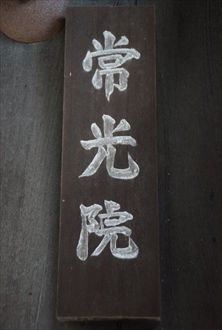 常光院